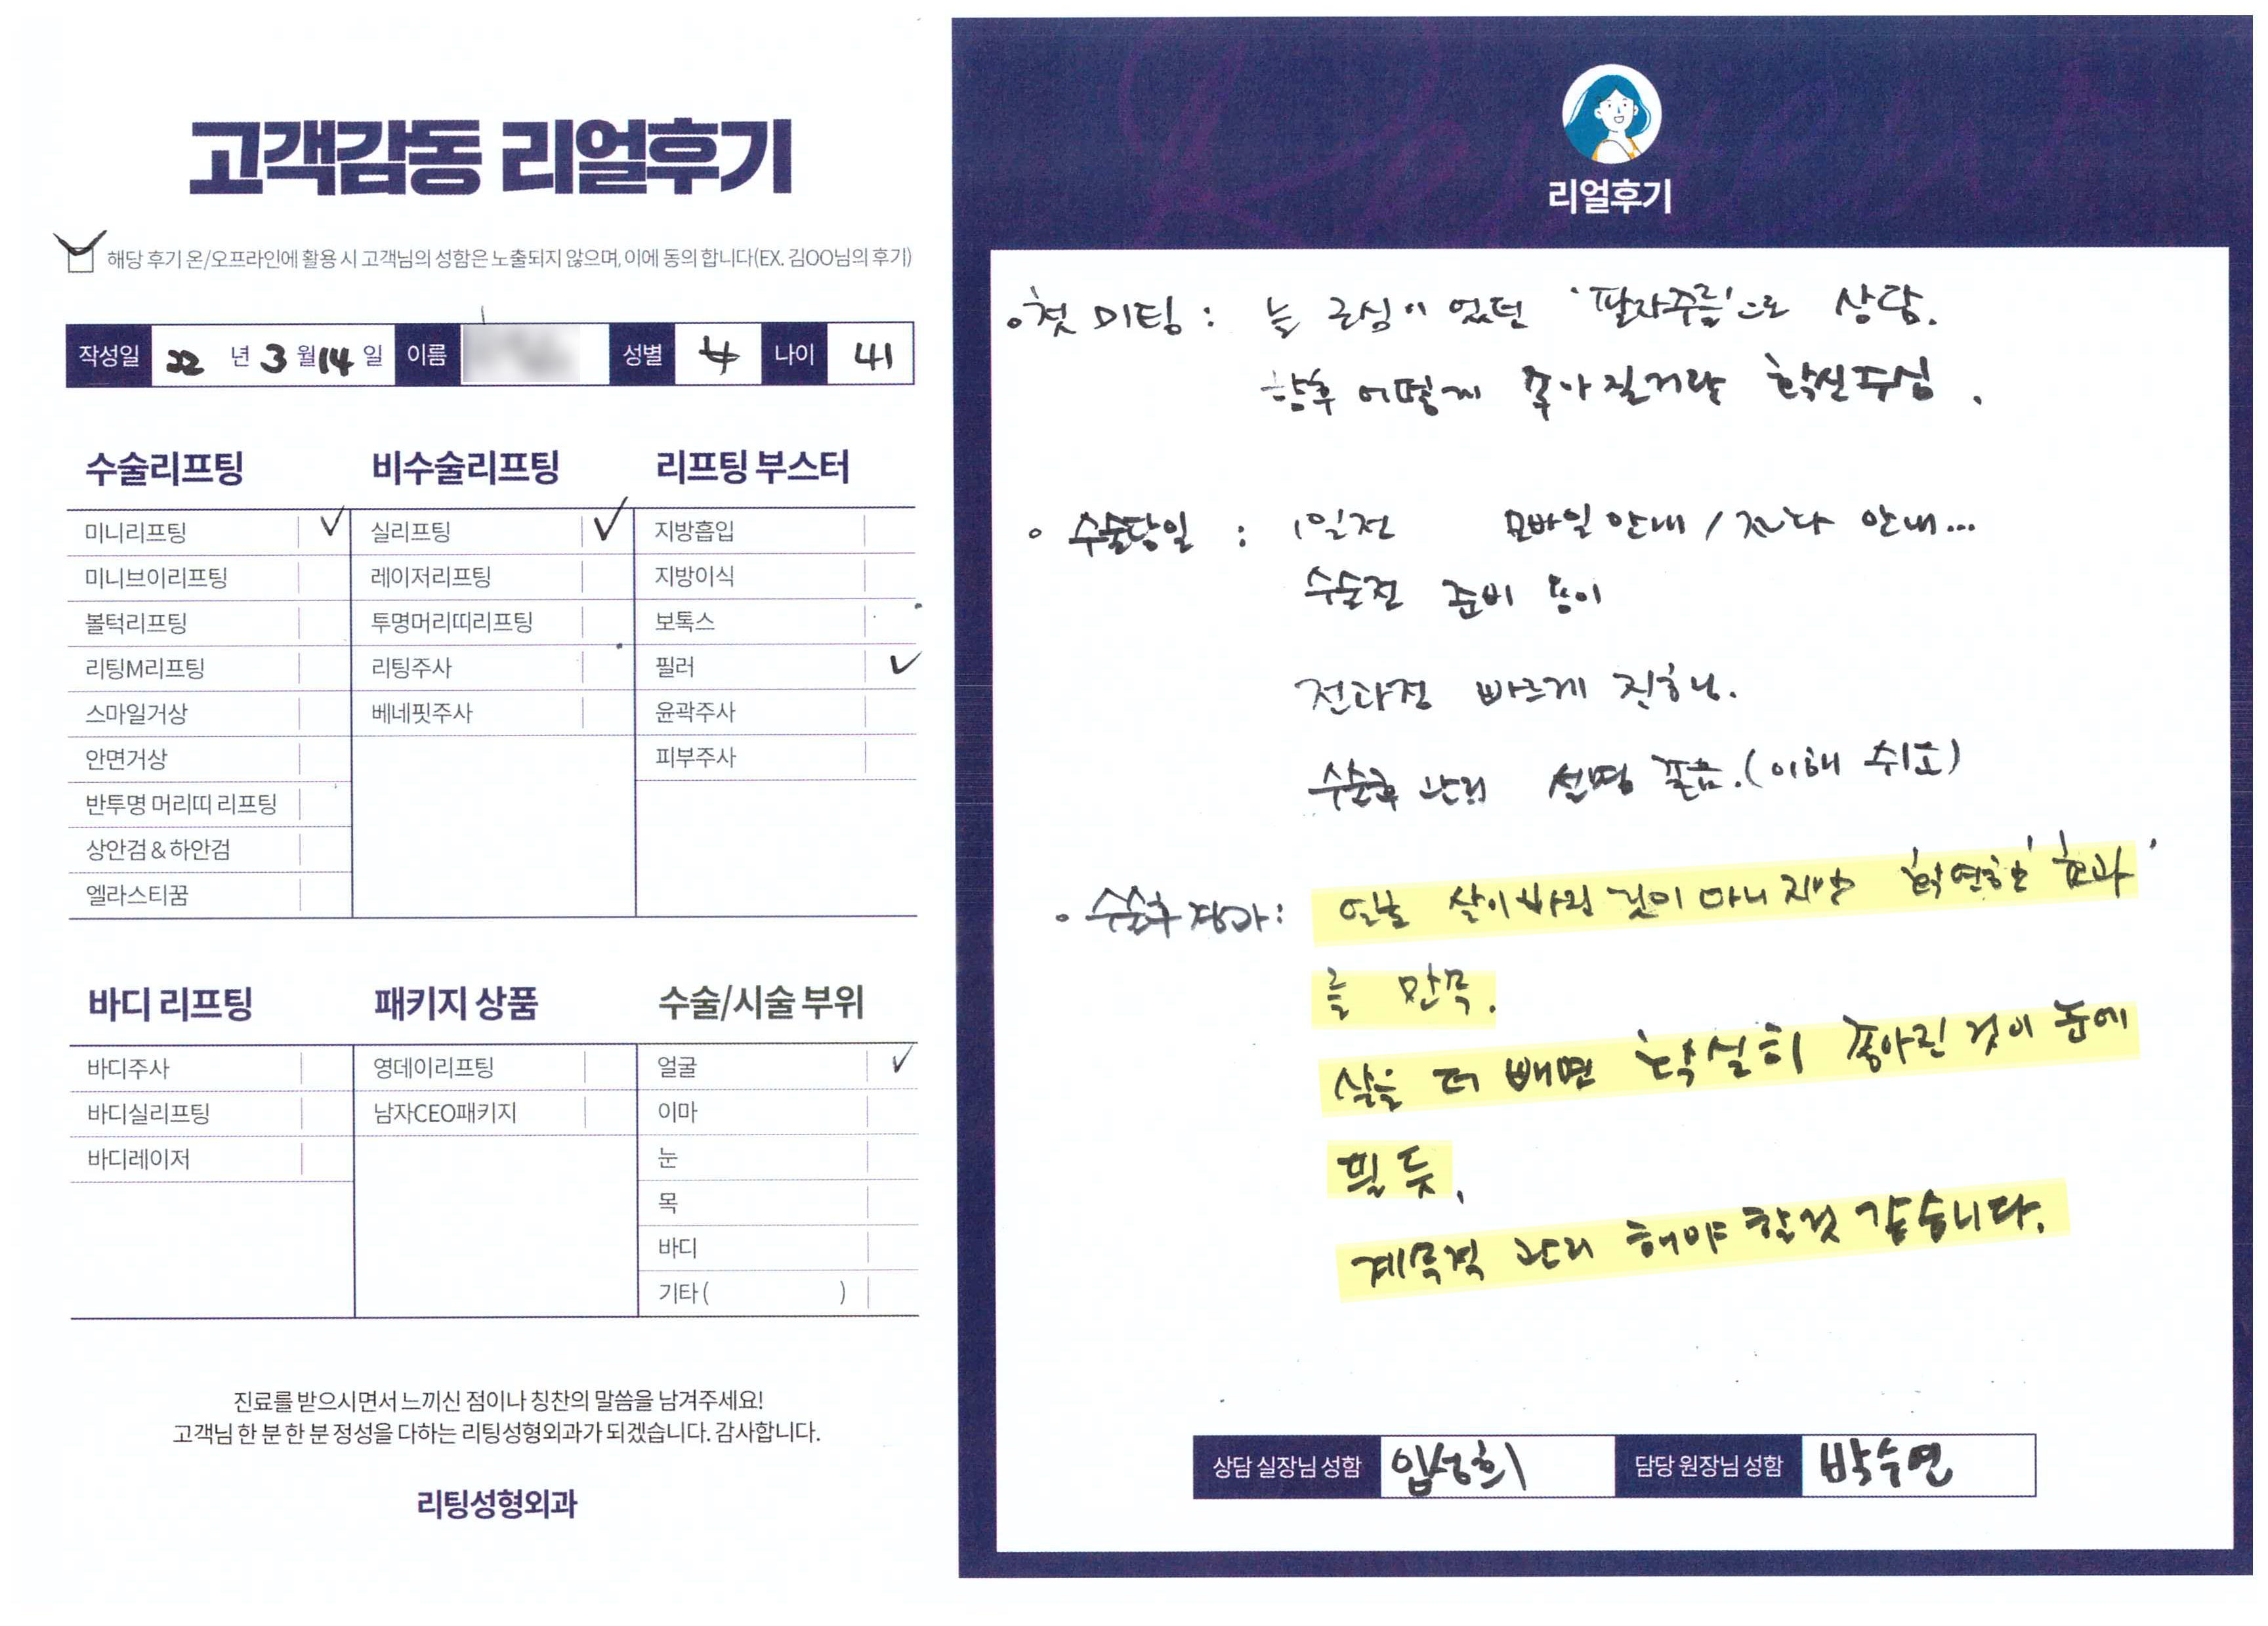 고객감동 리얼후기
해당 후기 온/오프라인에 활용 시 고객님의 성함은 노출되지 않으며, 이에 동의 합니다(EX. 김OO님의 후기)
작성일 22 년 3 월 14 일 이름 성별 나이 41
수술리프팅
미니리프팅 ✓
미니브이리프팅
볼턱리프팅
리팅M리프팅
스마일거상
안면거상
반투명 머리띠 리프팅
상안검 & 하안검
엘라스티꿈
비수술리프팅
실리프팅 ✓
레이저리프팅
투명머리띠리프팅
리팅주사
베네핏주사
리프팅 부스터
지방흡입
지방이식
보톡스
필러 ✓
윤곽주사
피부주사
바디 리프팅
바디주사
바디실리프팅
바디레이저
패키지 상품
영데이리프팅
남자CEO패키지
수술/시술 부위
얼굴 ✓
이마
눈
목
바디
기타 ( )
진료를 받으시면서 느끼신 점이나 칭찬의 말씀을 남겨주세요!
고객님 한 분 한 분 정성을 다하는 리팅성형외과가 되겠습니다. 감사합니다.
리팅성형외과
리얼후기
• 첫 미팅 : 늘 근심이 었던 '팔자주름'으로 상담.
향후 어떻게 좋아 질거란 확신주심.
• 수술당일 : 1일전 모바일 안내 / 전화 안내...
수술전 준비 용이
전과정 빠르게 진행.
수술후 관리 설명 꼼꼼. (이해 쉬움)
• 수술후 경과 : 얼굴 살이 빠진 것이 아니지만 '확연한 효과'
를 만족.
살을 더 빼면 확실히 좋아진 것이 눈에
띌 듯.
계속적 관리 해야 할것 같습니다.
상담 실장님 성함 임성희 담당 원장님 성함 박수연